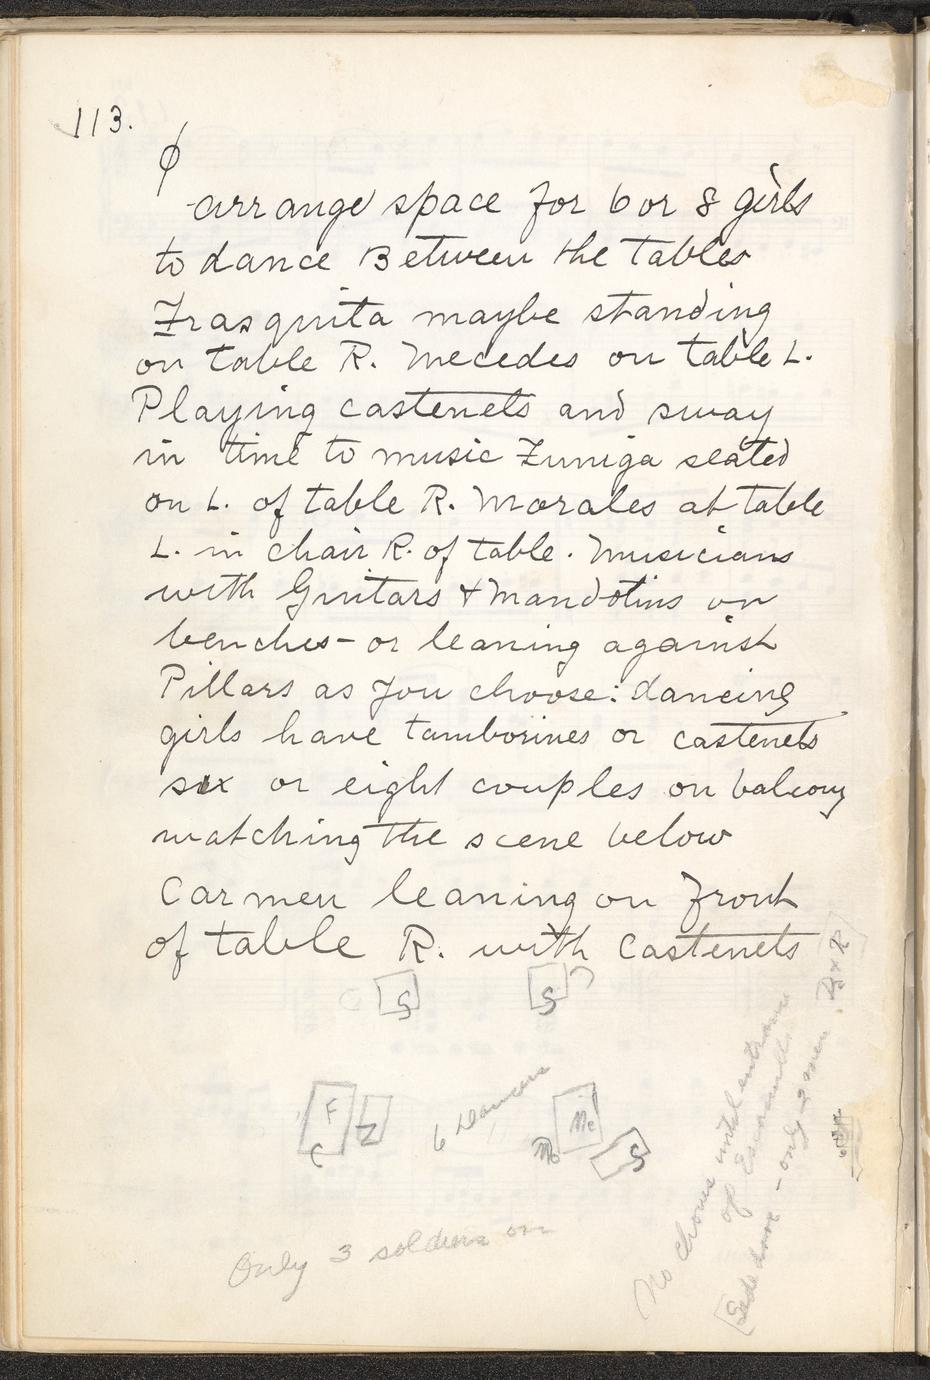 113.
φ
arrange space for 6 or 8 girls
to dance Between the tables
Frasquita maybe standing
on table R. Mecedes on table L.
Playing castenets and sway
in time to music Zuniga seated
on L. of table R. Morales at table
L. in chair R. of table. Musicians
with Guitars + Mandolins on
benches - or leaning against
Pillars as you choose: dancing
girls have tamborines or castenets
six or eight couples on balcony
watching the scene below
Carmen leaning on front
of table R. with castenets
S S
F Z 6 Dancers Me
C Mo S
Only 3 soldiers on
No chorus until entrance
of Escamillo
Side door - only 2 men